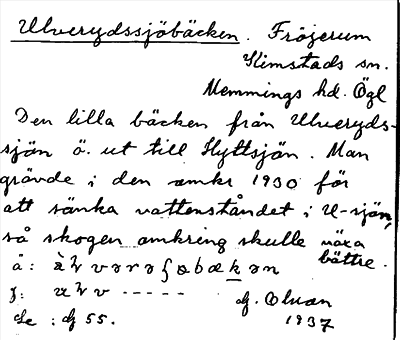 Ulverydssjöbäcken. Fröjerum
Kimstads sn.
Memmings hd. Ögl
Den lilla bäcken från Ulveryds-
sjön ö. ut till Hyttsjön. Man
grävde i den omkr 1930 för
att sänka vattenståndet i U-sjön,
så skogen omkring skulle växa
bättre.
1937